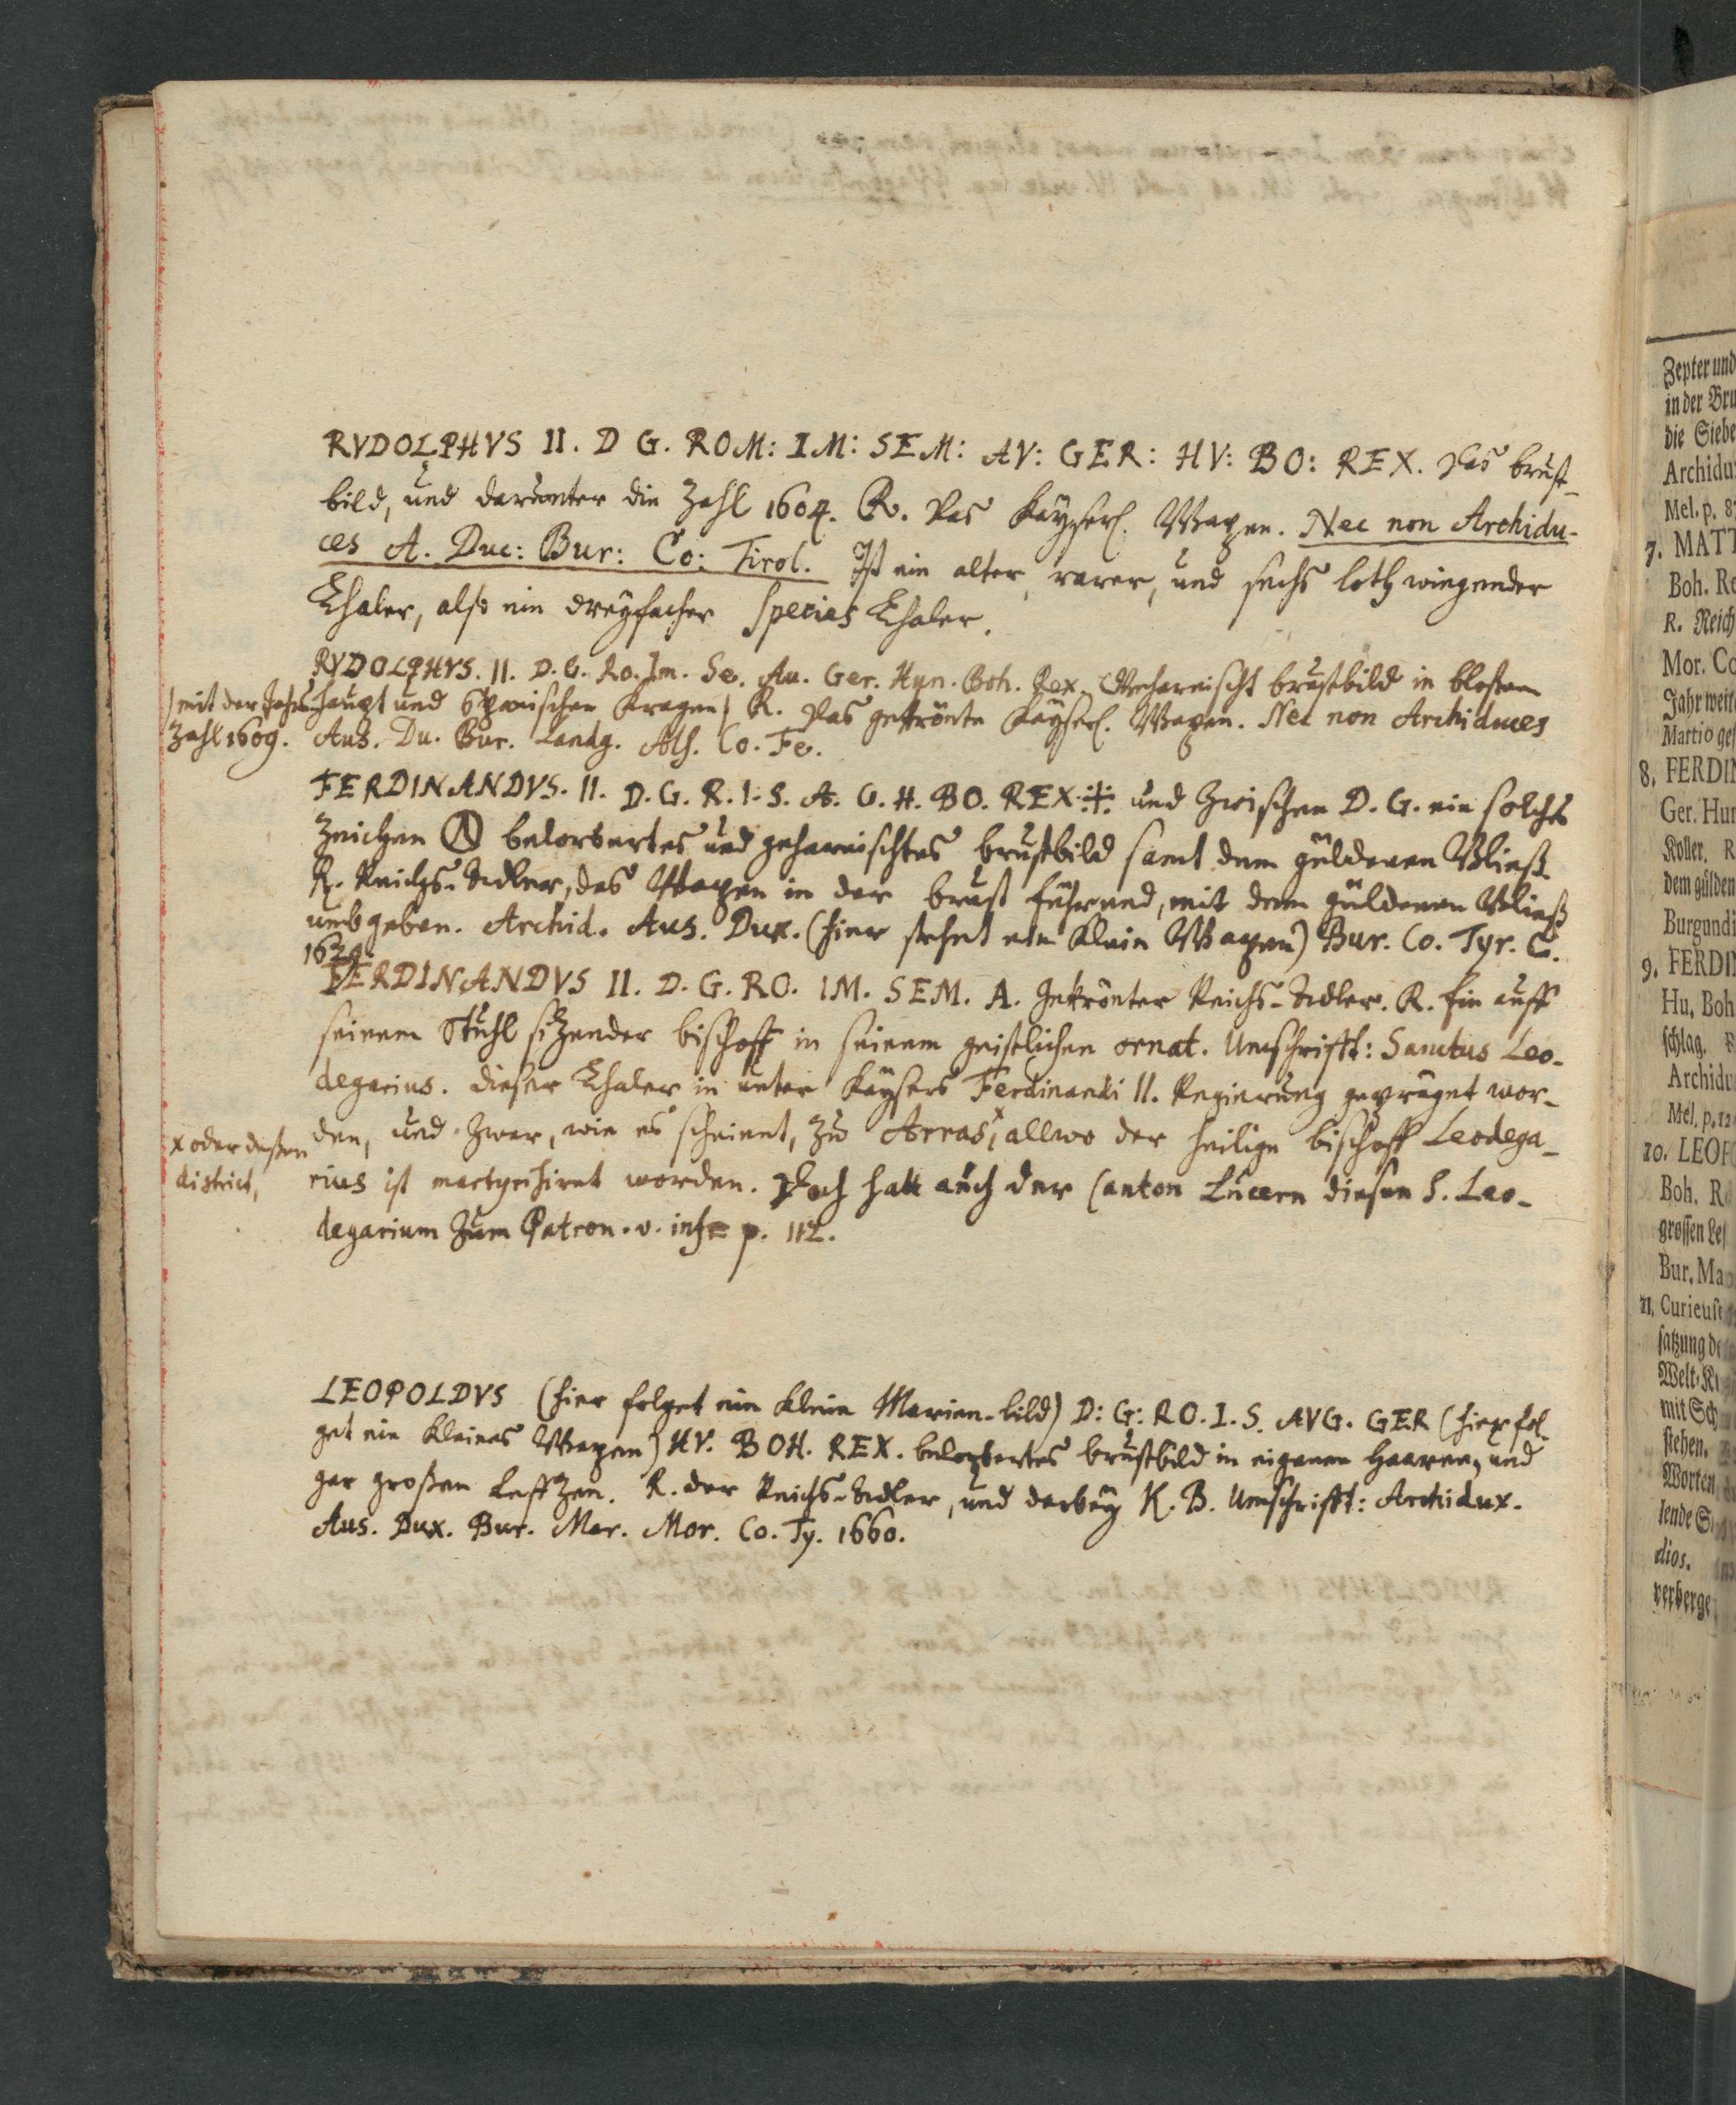 RVDOLPHVS II. D G. ROM: IM: SEM: AV: GER: HV: BO: REX. Das brust-
bild, und darunter die Zahl 1604. R. Das Kayserl. Wapen. Nec non Archidu-
ces A. Duc: Bur: Co: Tirol. Ist ein alter, rarer, und sechs loth wiegender
Thaler, also ein dreyfacher Species Thaler.
RVDOLPHVS. II. D. G. Ro. Im. Se. Au. Ger. Hun. Boh. Rex. Geharnischt brustbild in blosem
haupt und Spanischen Kragen R. Das gekrönte Kayserl. Wapen. Nec non Archiduces
Aus. Du. Bur. Landg. Als. Co. Fe.
mit der Jahr
Zahl 1609.
FERDINANDVS. II. D. G. R. I. S. A. G. H. BO. REX. und Zwischen D. G. ein solches
Zeichen belorbertes und geharnischtes brustbild samt dem güldenen Vließ
R. Reichs-Adler, das Wapen in der brust führend, mit dem güldenen Vließ
umbgeben. Archid. Aus. Dux. (hier stehet ein Klein Wapen) Bur. Co. Tyr. C.
FERDINANDVS II. D. G. RO. IM. SEM. A. Gekrönter Reichs-Adler. R. Ein auff
seinem Stuhl sizender bischoff in seinem geistlichen ornat. Umschrifft: Sanctus Leo-
degarius. dieser Thaler in unter Kaysers Ferdinandi II. Regierung gepräget wor-
den, und Zwar, wie es scheinet, zu Arras, x allwo der heilige bischoff Leodega-
rius ist martyrisiret worden. Doch hatt auch der Canton Lucern diesen S. Leo-
degarium Zum Patron. v. infr p. 112.
x oder deßen
district,
LEOPOLDVS (hier folget ein Klein Marien-bild) D: G: RO. I. S. AVG. GER (hier fol-
get ein Kleines Wapen) HV. BOH. REX. belorbertes brustbild in eigenen Haaren, und
gar großen Leffzen. R. der Reichs-Adler, und darbey K. B. Umschrifft: Archidux.
Aus. Dux. Bur. Mar. Mor. Co. Ty. 1660.
Zepter und
in der Bru
die Siebe
Archidu
Mel. p. 8
7. MATT
Boh. Re
R. Reich
Mor. Co
Jahr weit
Martio ges
8. FERDIN
Ger. Hun
Koller. R
dem gülden
Burgundi
9. FERDI
Hu. Boh
schlag. R
Archidu
Mel. p. 12
10. LEOP
Boh. R
grossen Lef
Bur. Ma
11. Curieuse
satzung de
Welt-K
mit Sch
stehen.
Worten
lende S
dios.
verberge